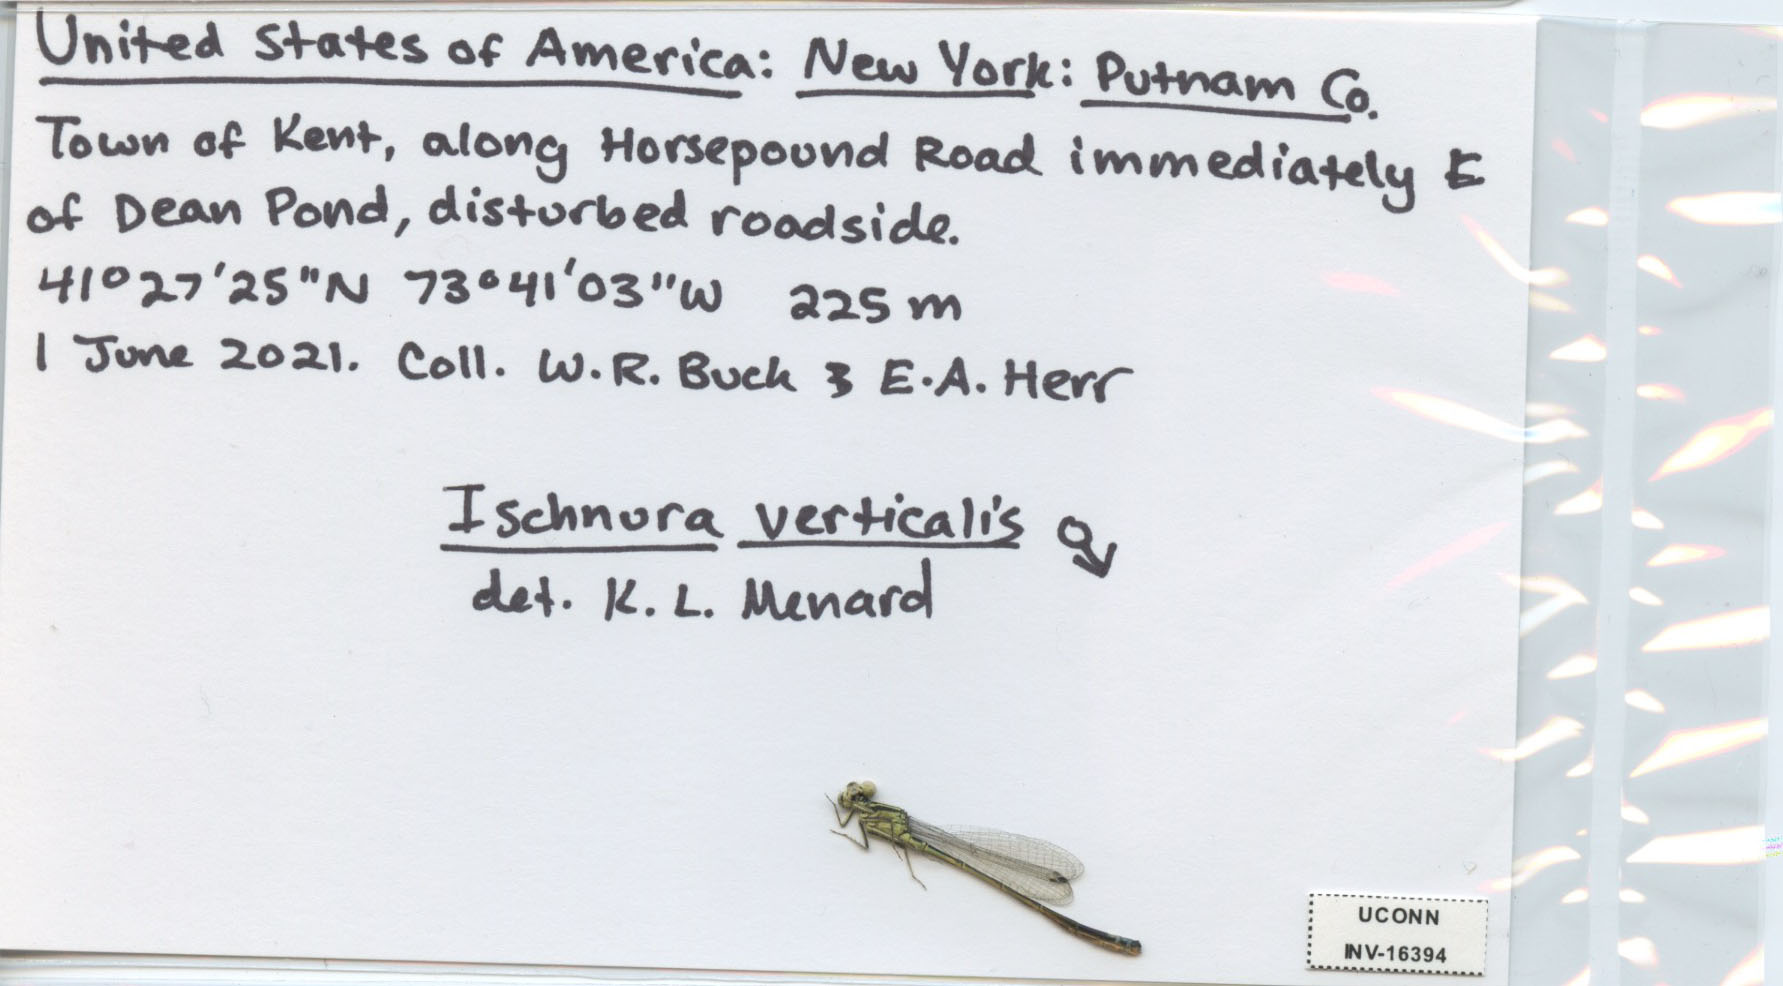 United States of America: New York: Putnam Co.
Town of Kent, along Horsepound Road immediately E
of Dean Pond, disturbed roadside.
41°27'25"N 73°41'03"W 225 m
1 June 2021. Coll. W.R. Buck & E.A. Herr
Ischnura verticalis ♂
det. K. L. Menard
UCONN
INV-16394